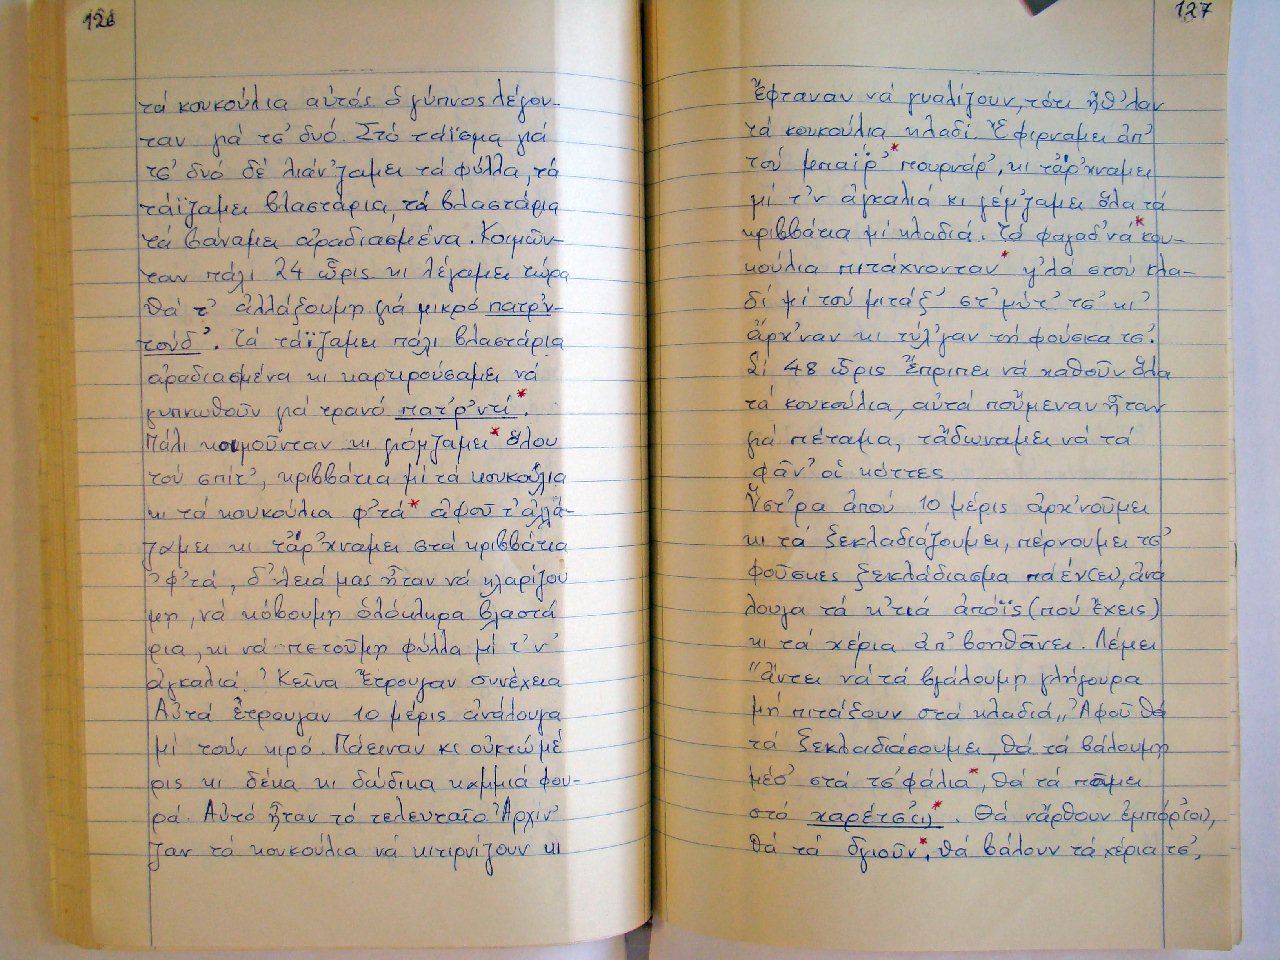 126
τά κουκούλια αὐτός ὁ γύπνος λέγον-
ταν γιά τσ' δυό. Στό τάϊσμα γιά
τσ' δυό δέ λιάν'ζαμει τά φύλλα, τά
τάϊζαμει βλαστάρια, τά βλαστάρια
τά βάναμει ἀραδιασμένα. Κοιμῶν-
ταν πάλι 24 ὧρις κι λέγαμει τώρα
θά τ' ἀλλάξουμη γιά μικρό πατρ'ν-
τούδ'. Τά τάϊζαμει πάλι βλαστάρια
ἀραδιασμένα κι καρτιρούσαμει νά
γυπνωθοῦν γιά τρανό πατ'ρ'ντί*.
Πάλι κοιμοῦνταν κι γιόμζαμει* ὅλου
τού σπίτ', κριββάτια μί τά κουκούλια
κι τά κουκούλια φ'τά* ἀφοῦ τ' ἀλλά-
ζαμει κι τἄρ'χναμει στά κριββάτια
'φ'τά, δ'λειά μας ἦταν νά κλαρίζου
μη, νά κόβουμη ὁλόκληρα βλαστά
ρια, κι νά πετοῦμη φύλλα μί τ'ν'
ἀγκαλιά. 'Κεῖνα ἔτρουγαν συνέχεια
Αὐτά ἔτρουγαν 10 μέρις ἀνάλουγα
μί τούν κιρό. Πάειναν κι οὐκτώ μέ
ρις κι δέκα κι δώδικα καμμιά φου-
ρά. Αὐτό ἦταν τό τελευταῖο. Ἀρχίν'
ζαν τά κουκούλια νά κιτιρνίζουν κι
127
Ἔφταναν νά γυαλίζουν, τότι ἤθ'λαν
τά κουκούλια κλαδί. Ἔφιρναμει ἀπ'
τού μπαΐρ'* πουρνάρ', κι τἄρ'χναμει
μί τ'ν ἀγκαλιά κι γέμ'ζαμει ὅλα τά
κριββάτια μί κλαδιά. Τά φαγαδ'νά* κου-
κούλια πιτάχνονταν* ψ'λά στού κλα-
δί μί τού μιτάξ' στ' μύτ' τσ' κι'
ἄρχ'ναν κι τύλ'γαν τή φούσκα τσ'.
Σί 48 ὧρις ἔπριπει νά χαθοῦν ὅλα
τά κουκούλια, αὐτά ποὔμεναν ἦταν
γιά πέταμα, τἄδωναμει νά τά
φᾶν' οἱ κόττες
Ὕστ'ρα ἀπού 10 μέρις ἀρχ'νοῦμει
κι τά ξεκλαδιάζουμει, πέρνουμει τσ'
φοῦσκες ξεκλάδιασμα πάεν(ει), ἀνα
λουγα τά κ'τιά ἀπόϊς (πού ἔχεις)
κι τά χέρια ἀπ' βοηθᾶνει. Λέμει
"ἄντει νά τά βγάλουμη γλήγουρα
μή πιτάξουν στά κλαδιά„ Ἀφοῦ θά
τά ξεκλαδιάσουμει, θά τά βάλουμη
μέσ' στά τσ'φάλια*, θά τά πᾶμει
στό χαρέτσ(ι)*. Θά νἄρθουν ἐμπόρ'(οι),
θά τά δγιοῦν*, θά βάλουν τά χέρια τσ',